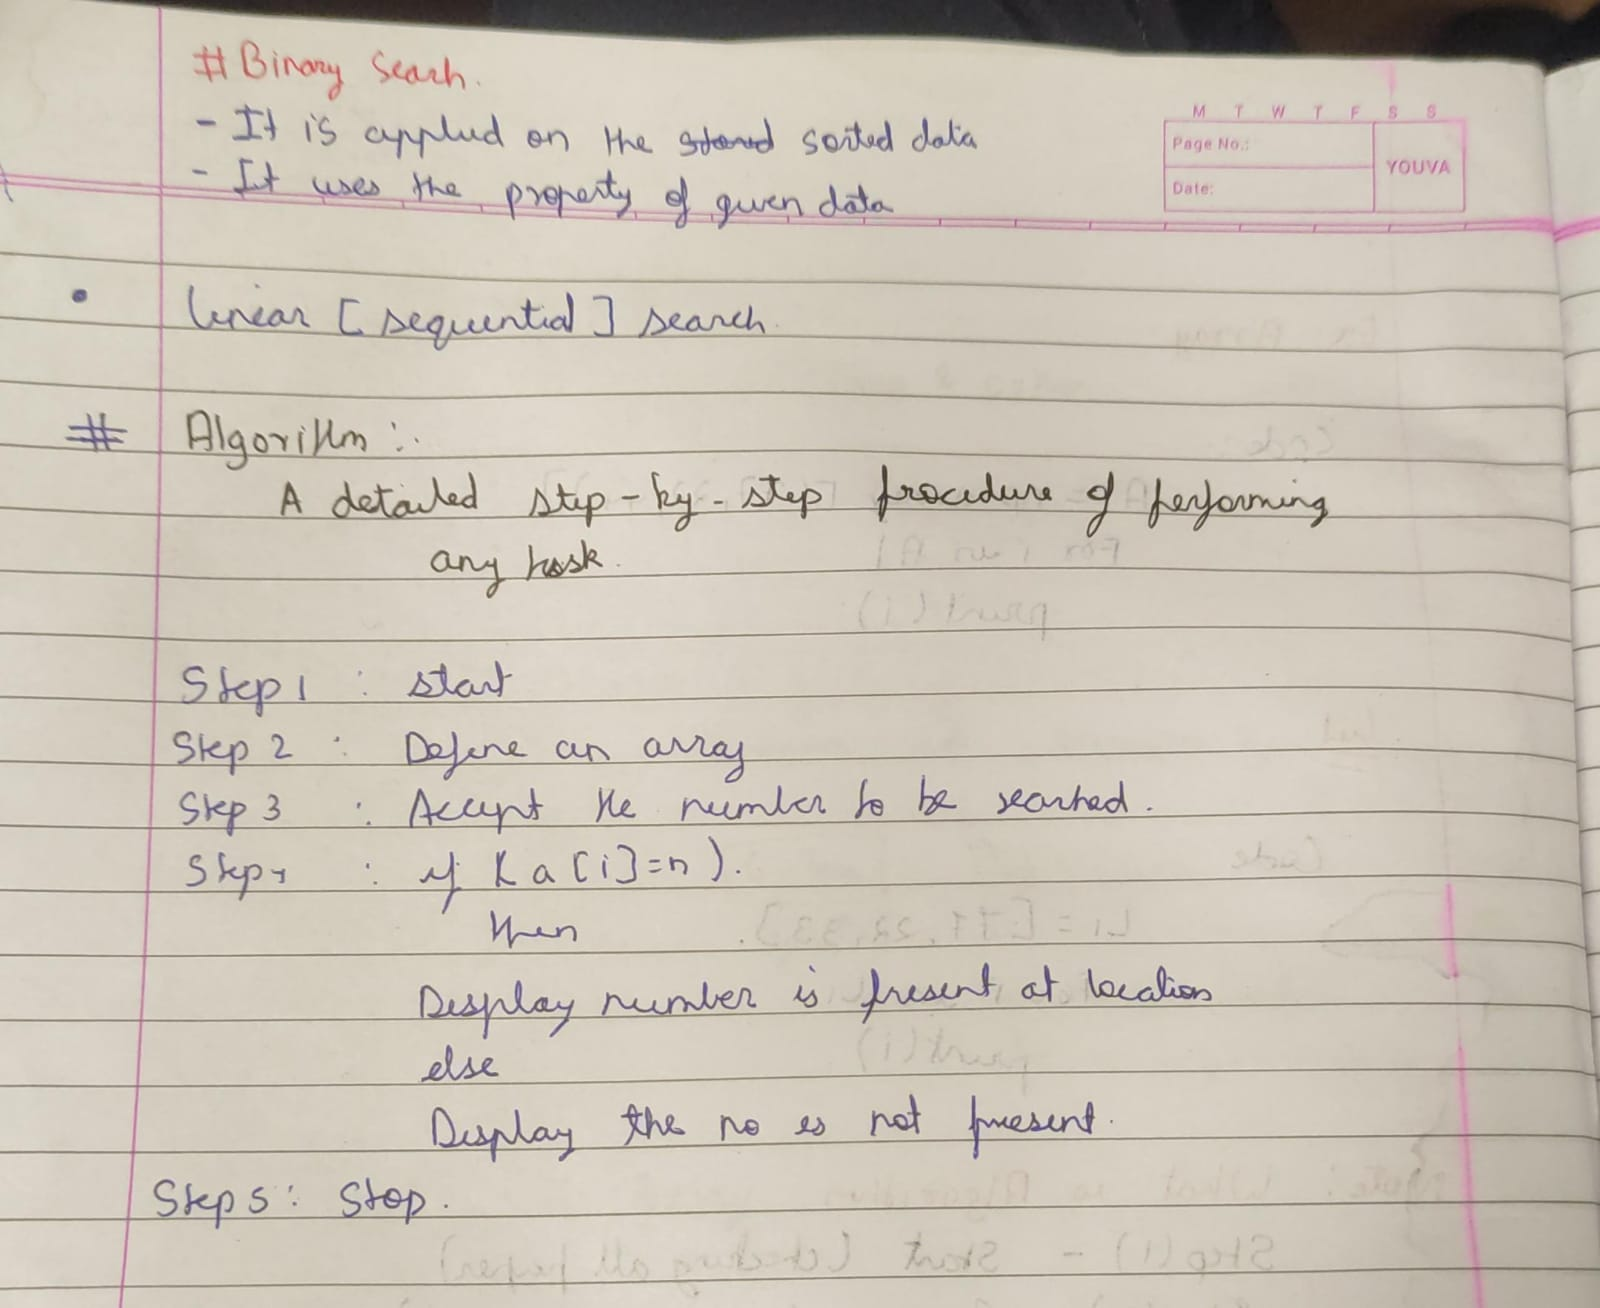 # Binary Search.
- It is applied on the stored sorted data
- It uses the property of given data
M T W T F S S
Page No.:
YOUVA
Date:
• linear [sequential] search.
# Algorithm :.
A detailed step-by-step procedure of performing
any task.
Step 1 : start
Step 2 : Define an array
Step 3 : Accept the number to be searched.
Step 4 : if ( a[i]=n ).
then
Display number is present at location
else
Display the no is not present.
Step 5: Stop.